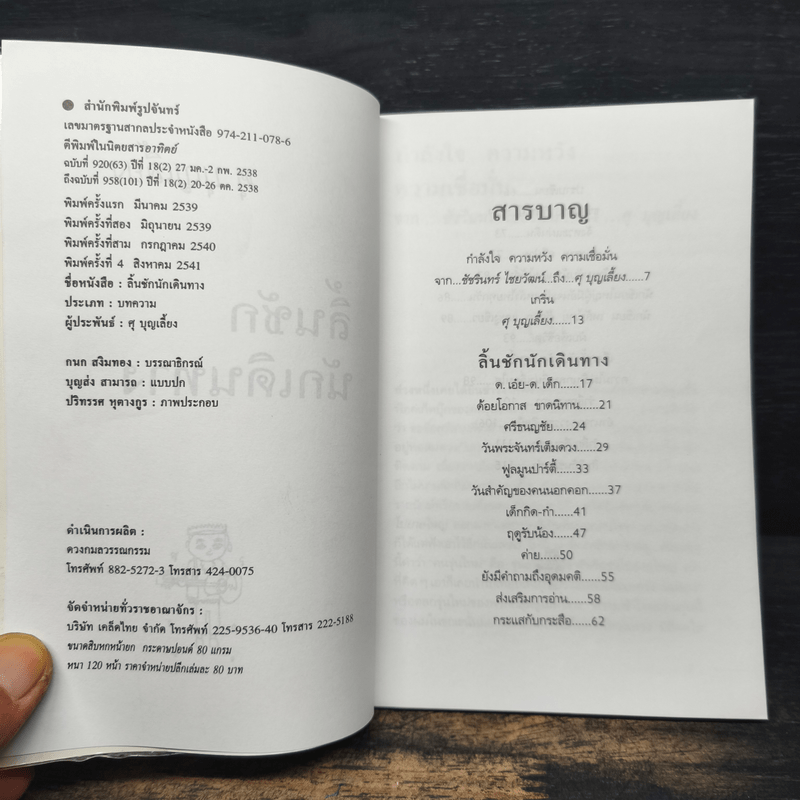 ● สำนักพิมพ์รูปจันทร์
เลขมาตรฐานสากลประจำหนังสือ 974-211-078-6
ตีพิมพ์ในนิตยสารอาทิตย์
ฉบับที่ 920(63) ปีที่ 18(2) 27 มค.-2 กพ. 2538
ถึงฉบับที่ 958(101) ปีที่ 18(2) 20-26 ตค. 2538
พิมพ์ครั้งแรก มีนาคม 2539
พิมพ์ครั้งที่สอง มิถุนายน 2539
พิมพ์ครั้งที่สาม กรกฎาคม 2540
พิมพ์ครั้งที่ 4 สิงหาคม 2541
ชื่อหนังสือ : ลิ้นชักนักเดินทาง
ประเภท : บทความ
ผู้ประพันธ์ : ศุ บุญเลี้ยง
กนก สงิมทอง : บรรณาธิกรณ์
บุญส่ง สามารถ : แบบปก
ปริทรรศ หุตางกูร : ภาพประกอบ
ดำเนินการผลิต :
ดวงกมลวรรณกรรม
โทรศัพท์ 882-5272-3 โทรสาร 424-0075
จัดจำหน่ายทั่วราชอาณาจักร :
บริษัท เคล็ดไทย จำกัด โทรศัพท์ 225-9536-40 โทรสาร 222-5188
ขนาดสิบหกหน้ายก กระดาษปอนด์ 80 แกรม
หนา 120 หน้า ราคาจำหน่ายปลีกเล่มละ 80 บาท
สารบาญ
กำลังใจ ความหวัง ความเชื่อมั่น
จาก...ชัชรินทร์ ไชยวัฒน์...ถึง...ศุ บุญเลี้ยง.....7
เกริ่น
ศุ บุญเลี้ยง......13
ลิ้นชักนักเดินทาง
ด. เอ๋ย-ด. เด็ก......17
ด้อยโอกาส ขาดนิทาน......21
ศรีธนญชัย......24
วันพระจันทร์เต็มดวง......29
ฟูลมูนปาร์ตี้......33
วันสำคัญของคนนอกคอก......37
เด็กกิด-กำ......41
ฤดูรับน้อง......47
ค่าย.....50
ยังมีคำถามถึงอุดมคติ......55
ส่งเสริมการอ่าน......58
กระแสกับกระสือ......62